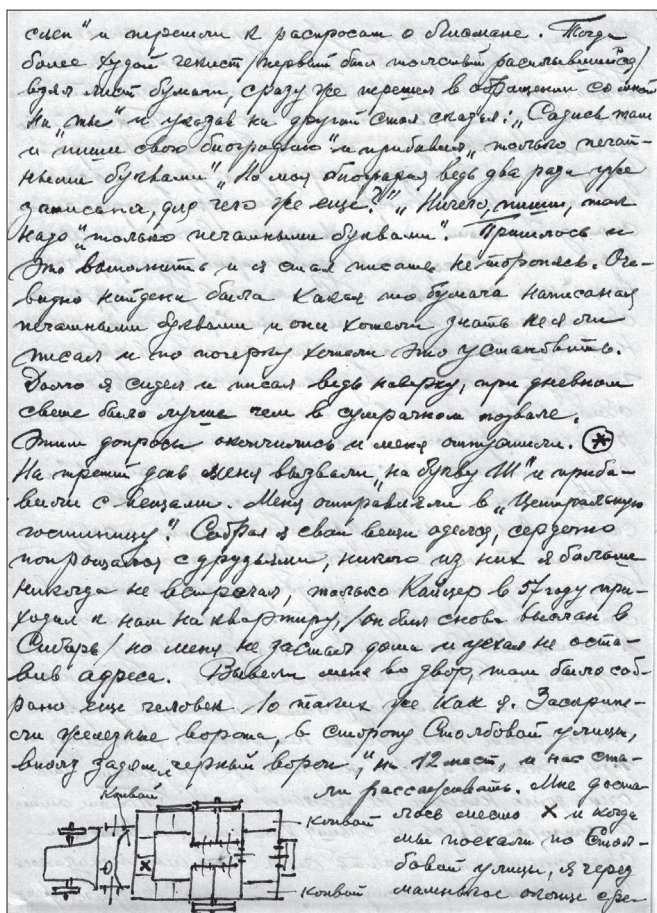 слеп" и перешли к распросам о Гиомане. Тогда
более худой чекист /первый был толстый расплывшийся/
взял лист бумаги, сразу же перешел в обращении со мной
на "ты" и указав на другой стол сказал: "Садись там
и "пиши свою биографию" и прибавил "только печат-
ными буквами" "Но моя биография ведь два раза уже
записана, для чего же еще?" "Ничего, пиши, так
надо" только печатными буквами". Пришлось и
это выполнить и я стал писать не торопясь. Оче-
видно найдена была какая то бумага написаная
печатными буквами и они хотели знать не я ли
писал и по почерку хотели это установить.
Долго я сидел и писал ведь наверху, при дневном
свете было лучше чем в сумрачном подвале.
Этим допросы окончились и меня отпустили. *
На третий день меня вызвали "на букву Ш" и приба-
вили с вещами. Меня отправляли в "Центральную
гостиницу". Собрал я свои вещи оделся, сердечно
попрощался с друзьями, никого из них я больше
никогда не встречал, только Кайцер в 57 году при-
ходил к нам на квартиру, /он был снова выслан в
Сибирь/ но меня не застал дома и уехал не оста-
вив адреса. Вывели меня во двор, там было соб-
рано еще человек 10 таких же как я. Заскрипе-
ли железные ворота, в сторону Столбовой улицы,
вполз задом "черный ворон", на 12 мест, и нас ста-
ли рассаживать. Мне доста
лось место х и когда
мы поехали по Стол-
бовой улице, я через
маленькое окошце
Конвой
Конвой
Конвой
х